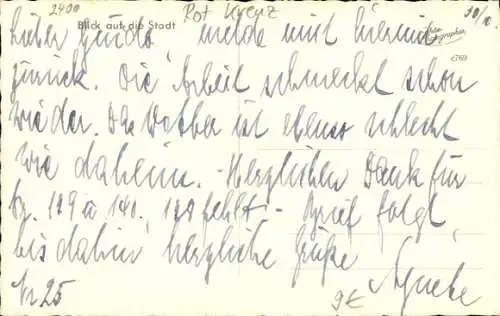 2400
Rot Kreuz
30/10.
Blick auf die Stadt
Lieber Guido, melde mich hiermit
zurück. Die Arbeit schmeckt schon
wieder. Das Wetter ist ebenso schlecht
wie daheim. - Herzlichen Dank für
Br. 139 u 140, 129 fehlt - Brief folgt,
bis dahin herzliche Grüße
Nr 25
9€